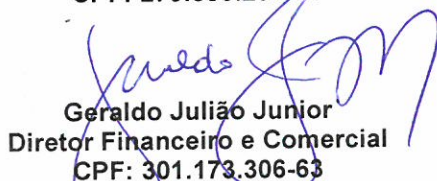 Geraldo Julião Junior
Diretor Financeiro e Comercial
CPF: 301.173.306-63